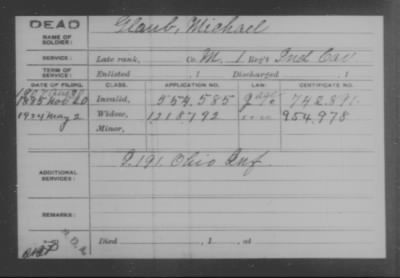 DEAD
NAME OF SOLDIER: Glaub, Michael
SERVICE: Late rank, Co. M, 1 Reg't Ind Cav
TERM OF SERVICE: Enlisted , 1 Discharged , 1
DATE OF FILING. CLASS. APPLICATION NO. LAW. CERTIFICATE NO.
1885 Nov 20 Invalid, 554,585 742,891
1924 May 2 Widow, 1218792 954,978
Minor,
ADDITIONAL SERVICES: 191 Ohio Inf
REMARKS:
Died , 1 , at